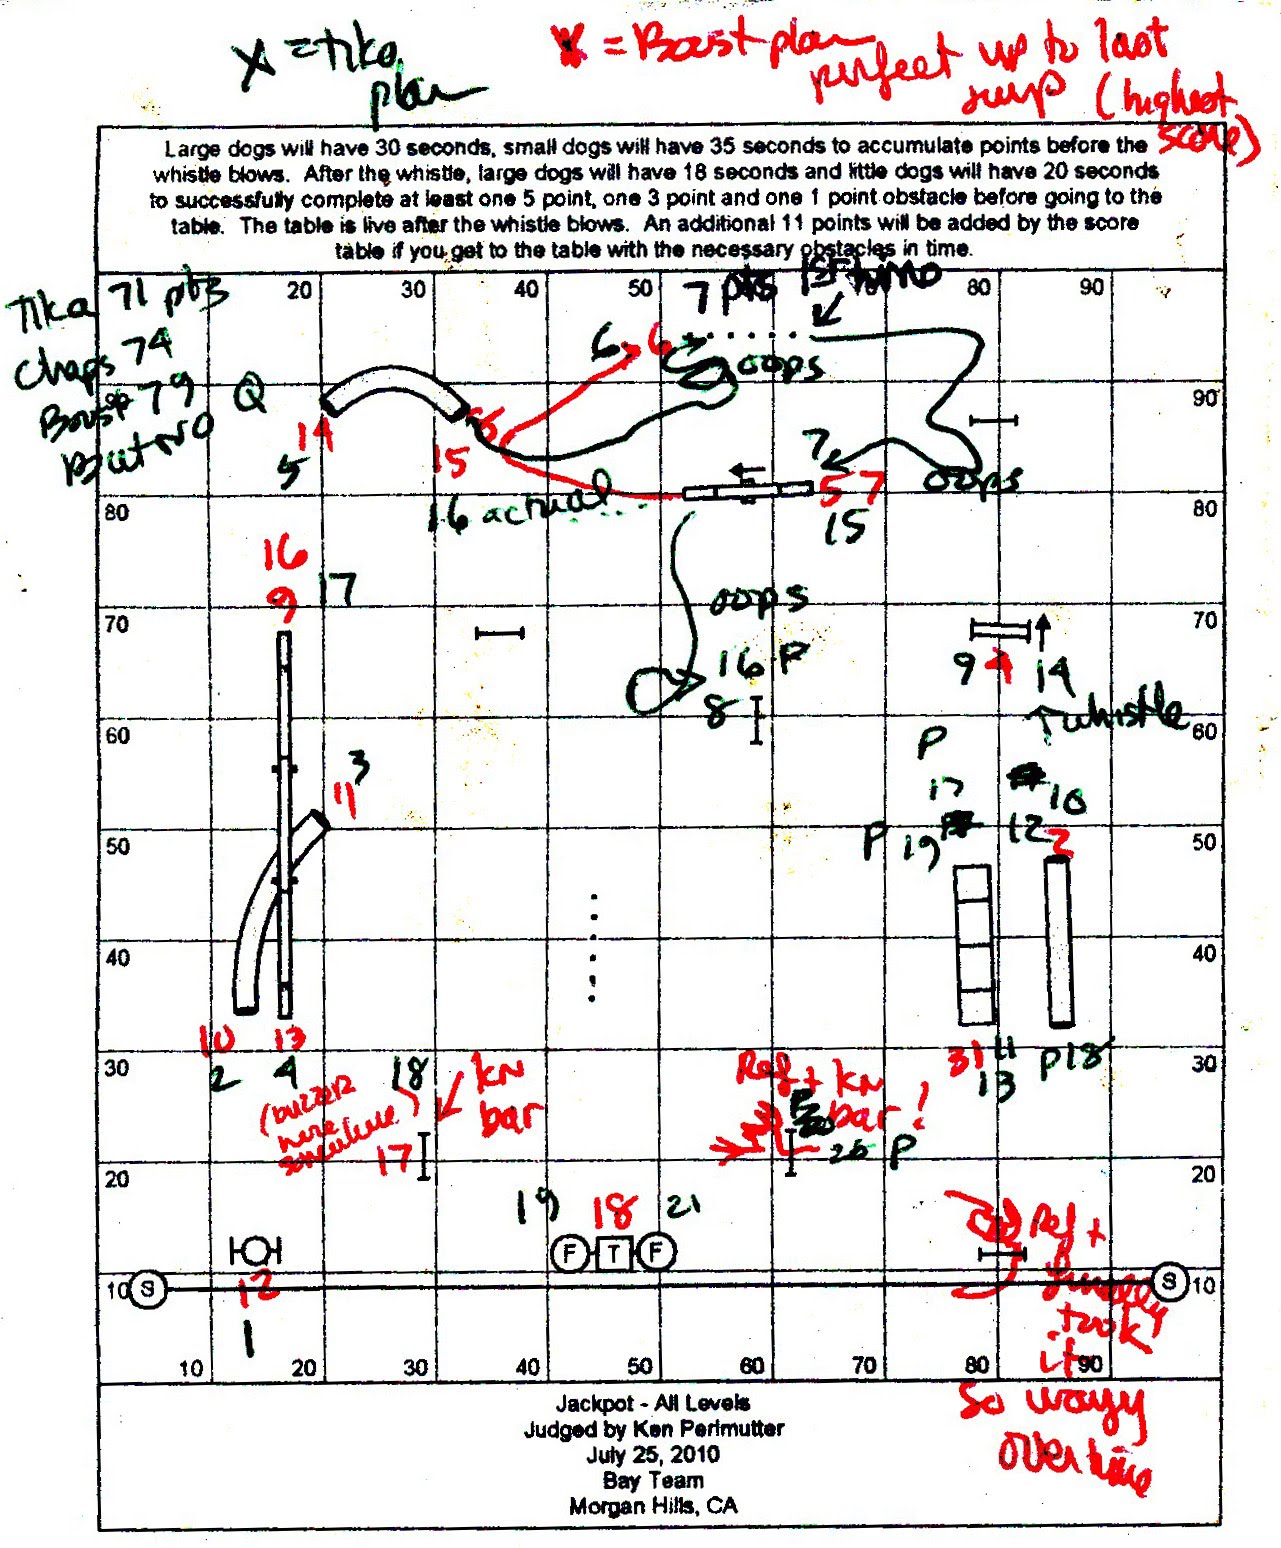 X = Tika plan
X = Boost plan
perfect up to last
jump (highest
score)
Large dogs will have 30 seconds, small dogs will have 35 seconds to accumulate points before the
whistle blows. After the whistle, large dogs will have 18 seconds and little dogs will have 20 seconds
to successfully complete at least one 5 point, one 3 point and one 1 point obstacle before going to the
table. The table is live after the whistle blows. An additional 11 points will be added by the score
table if you get to the table with the necessary obstacles in time.
20 30 40 50 80 90
Tika 71 pts
Chaps 74
Boost 79 Q
But NO
7 pts
6 6
oops
90
14 15 6
5
7
5 7
oops
80 16 actual 15 80
16
9 17
oops
70 70
16 P
8
9 4 14
whistle
60 60
P
3
11
17 10
50 P 19 12 2 50
40 40
10 13
30 2 4 18 kn
bar
Ref + kn
bar!
31 11
13
P18 30
(buzzer
here
17
20 20 P 20
19 18 21
F T F
Ref +
finally
took
it
so wayy
overtime
10 S 12 S 10
1
10 20 30 40 50 60 70 80 90
Jackpot - All Levels
Judged by Ken Perlmutter
July 25, 2010
Bay Team
Morgan Hills, CA